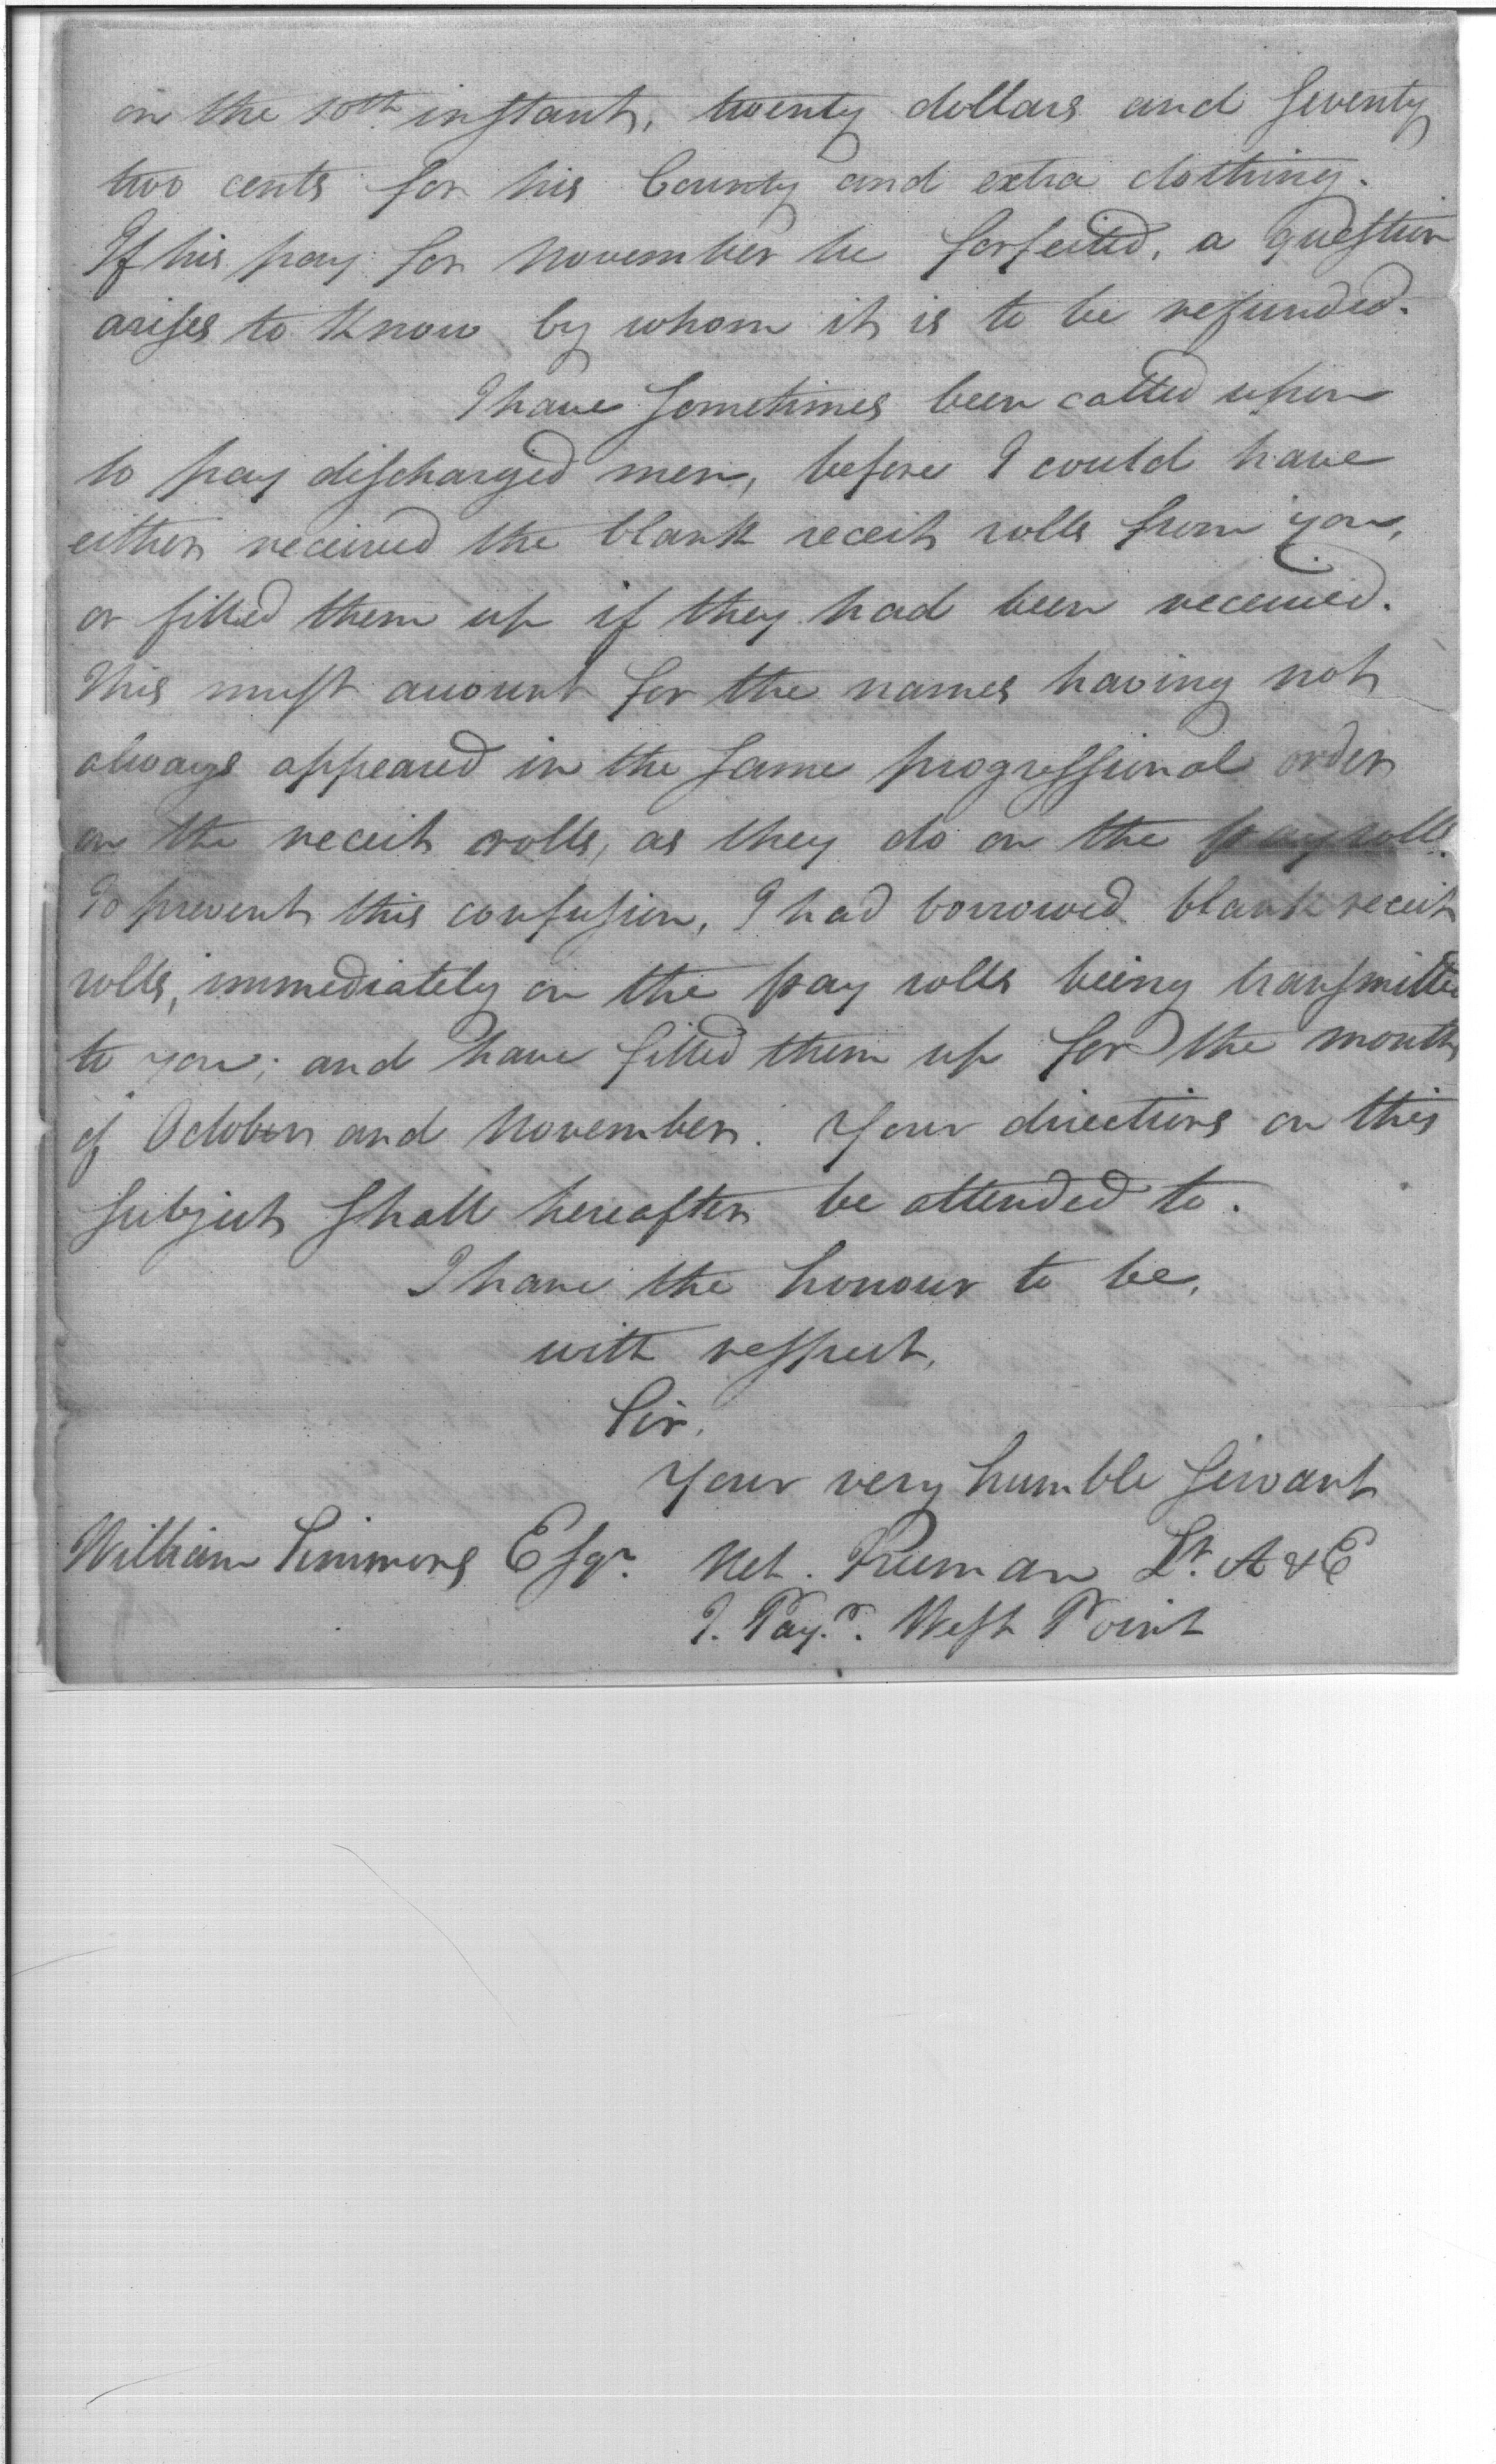 on the 10th instant, twenty dollars and seventy
two cents for his bounty and extra clothing.
If his pay for November be forfeited, a question
arises to know by whom it is to be refunded.
I have sometimes been called upon
to pay discharged men, before I could have
either received the blank receit rolls from you,
or filled them up if they had been received.
This must account for the names having not
always appeared in the same progressional order
on the receit rolls, as they do on the pay rolls.
To prevent this confusion, I had borrowed blank receit
rolls, immediately on the pay rolls being transmitted
to you; and have filled them up for the months
of October and November. Your directions on this
subject shall hereafter be attended to.
I have the honour to be,
with respect,
Sir,
Your very humble servant
William Simmons Esqr. Neh. Freeman Lt. A & E
P. Payr. West Point